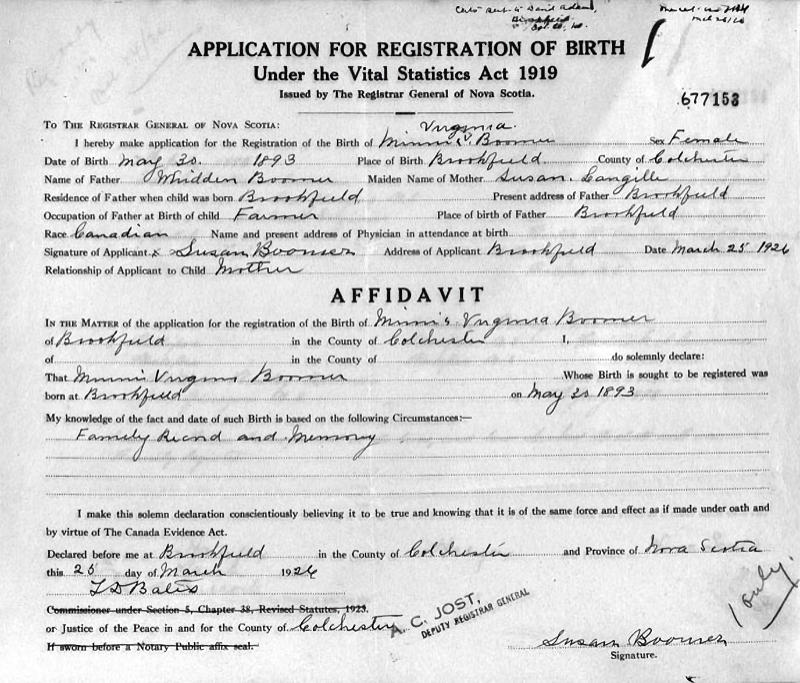 Cert sent to David Adams,
Brookfield
APPLICATION FOR REGISTRATION OF BIRTH
Under the Vital Statistics Act 1919
Issued by The Registrar General of Nova Scotia.
677153
TO THE REGISTRAR GENERAL OF NOVA SCOTIA:
Virginia
I hereby make application for the Registration of the Birth of Minnie V. Boomer Sex Female
Date of Birth May 30. 1893 Place of Birth Brookfield County of Colchester
Name of Father Whidden Boomer Maiden Name of Mother Susan Langille
Residence of Father when child was born Brookfield Present address of Father Brookfield
Occupation of Father at Birth of child Farmer Place of birth of Father Brookfield
Race Canadian Name and present address of Physician in attendance at birth
Signature of Applicant x Susan Boomer Address of Applicant Brookfield Date March 25 1926
Relationship of Applicant to Child Mother
AFFIDAVIT
IN THE MATTER of the application for the registration of the Birth of Minnie Virginia Boomer
of Brookfield in the County of Colchester I,
of in the County of do solemnly declare:
That Minnie Virginia Boomer Whose Birth is sought to be registered was
born at Brookfield on May 30 1893
My knowledge of the fact and date of such Birth is based on the following Circumstances:—
Family Record and Memory
I make this solemn declaration conscientiously believing it to be true and knowing that it is of the same force and effect as if made under oath and
by virtue of The Canada Evidence Act.
Declared before me at Brookfield in the County of Colchester and Province of Nova Scotia
this 25 day of March 1926
L D Bates
Commissioner under Section 5, Chapter 38, Revised Statutes, 1923.
or Justice of the Peace in and for the County of Colchester
A. C. JOST,
DEPUTY REGISTRAR GENERAL
If sworn before a Notary Public affix seal.
Susan Boomer
Signature.